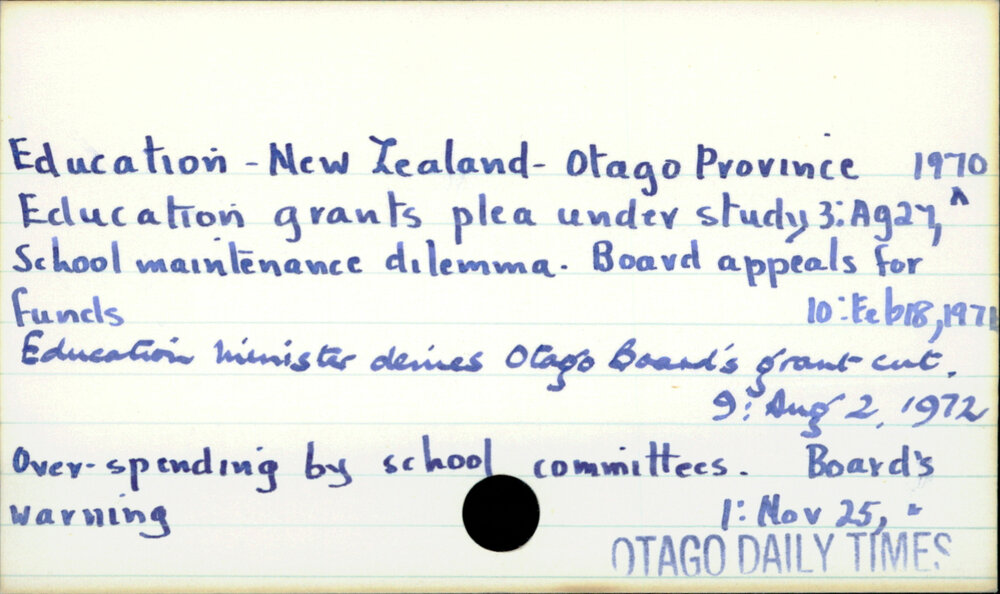 Education - New Zealand - Otago Province 1970
Education grants plea under study 3: Ag 27, ^
School maintenance dilemma. Board appeals for
funds 10: Feb 18, 1971
Education Minister denies Otago Board's grant cut.
9: Aug 2, 1972
Over-spending by school committees. Board's
warning 1: Nov 25, "
OTAGO DAILY TIMES